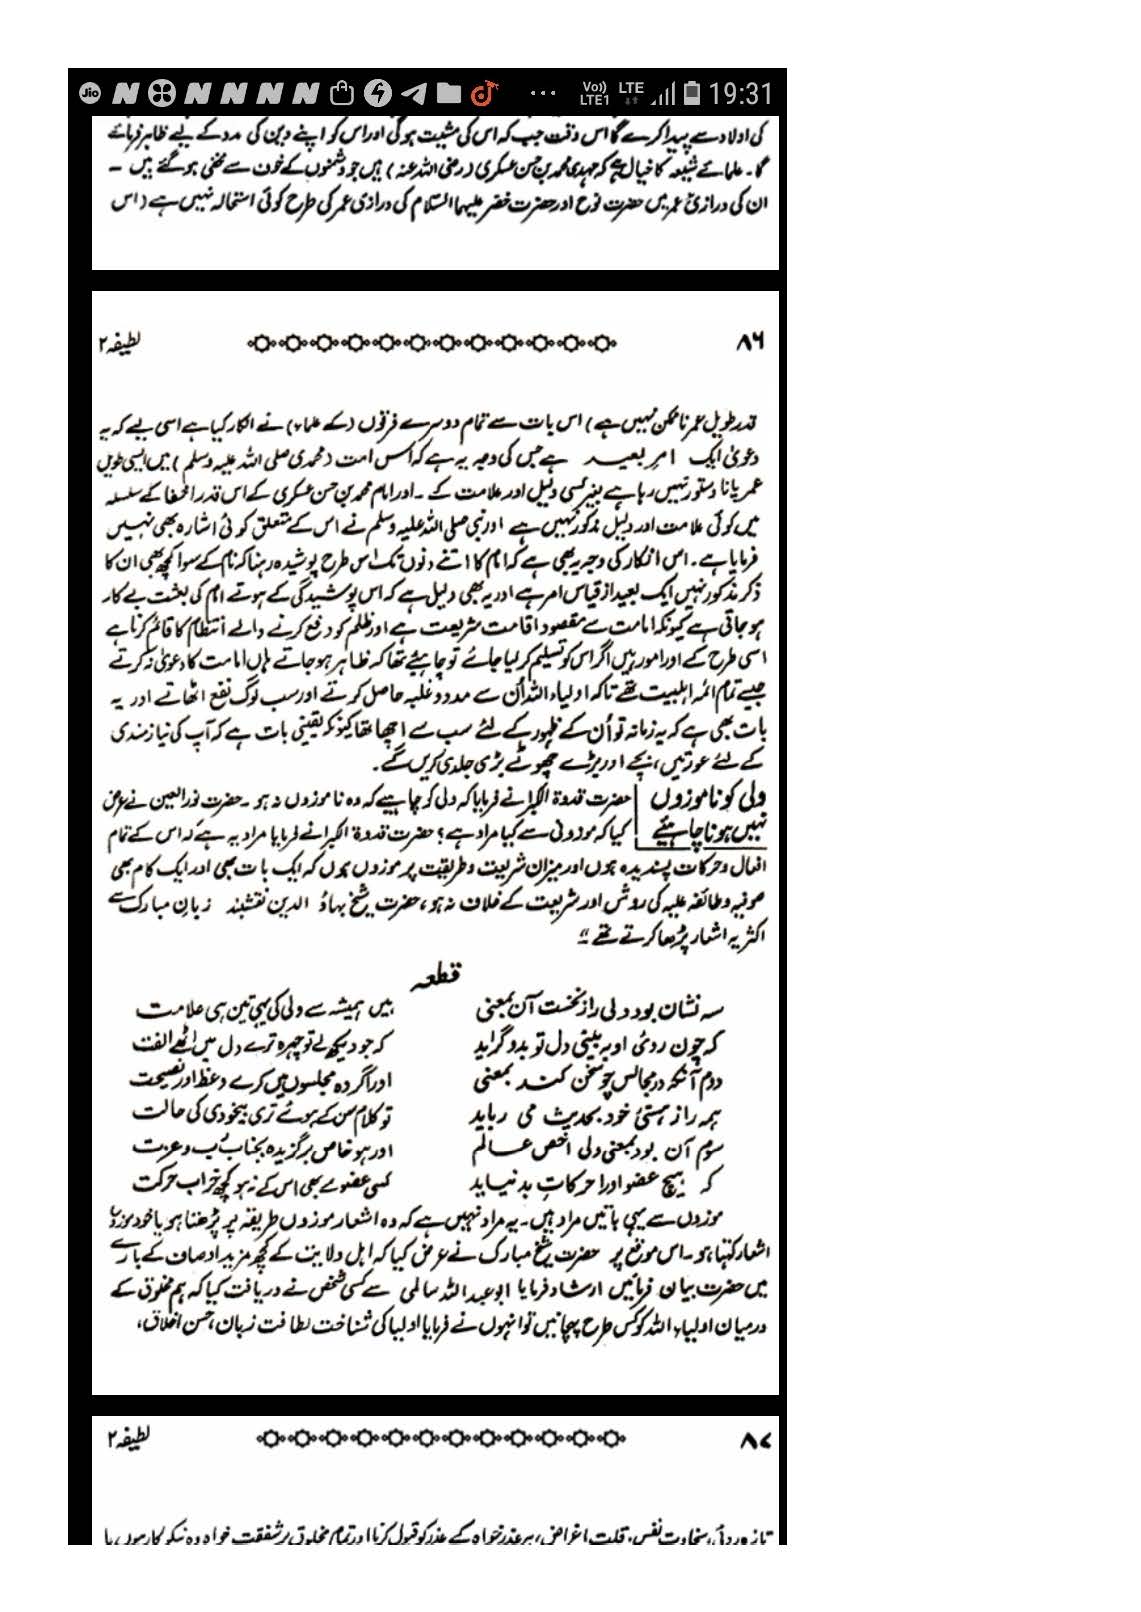 19:31
Jio
Vo)) LTE LTE1
کی اولاد سے پیدا کرے گا اس وقت جب کہ اس کی مشیت ہوگی اور اس کو اپنے دین کی مدد کے لیے ظاہر فرمائے
گا۔ علمائے شیعہ کا خیال ہے کہ مہدی محمد بن حسن عسکری (رضی اللہ عنہ) ہیں جو دشمنوں کے خوف سے مخفی ہو گئے ہیں ۔
ان کی درازئ عمر میں حضرت نوح اور حضرت خضر علیہما السلام کی درازی عمر کی طرح کوئی استحالہ نہیں ہے (اس
۸۶
لطیفہ ۲
قدر طویل عمر ناممکن نہیں ہے) اس بات سے تمام دوسرے فرقوں (کے علماء) نے انکار کیا ہے اسی لیے کہ یہ
دعویٰ ایک امر بعید ہے جس کی وجہ یہ ہے کہ اس امت (محمدی صلی اللہ علیہ وسلم) میں ایسی طویل
عمر پانا دستور نہیں رہا ہے بغیر کسی دلیل اور علامت کے ۔ اور امام محمد بن حسن عسکری کے اس قدر اخفا کے سلسلہ
میں کوئی علامت اور دلیل مذکور نہیں ہے اور نبی صلی اللہ علیہ وسلم نے اس کے متعلق کوئی اشارہ بھی نہیں
فرمایا ہے۔ اس انکار کی وجہ یہ بھی ہے کہ امام کا اتنے دنوں تک اس طرح پوشیدہ رہنا کہ نام کے سوا کچھ بھی ان کا
ذکر مذکور نہیں ایک بعید از قیاس امر ہے اور یہ بھی دلیل ہے کہ اس پوشیدگی کے ہوتے امام کی بعثت بے کار
ہو جاتی ہے کیونکہ امامت سے مقصود اقامت شریعت ہے اور ظلم کو دفع کرنے والے انتظام کا قائم کرنا ہے
اسی طرح کے اور امور ہیں اگر اس کو تسلیم کر لیا جائے تو چاہیئے تھا کہ ظاہر ہو جاتے ہاں امامت کا دعویٰ نہ کرتے
جیسے تمام ائمہ اہلبیت تھے تاکہ اولیاء اللہ اُن سے مدد و غلبہ حاصل کرتے اور سب لوگ نفع اٹھاتے اور یہ
بات بھی ہے کہ یہ زمانہ تو اُن کے ظہور کے لئے سب سے اچھا تھا کیونکہ یقینی بات ہے کہ آپ کی نیازمندی
کے لئے عورتیں، بچے اور بڑے چھوٹے بڑی جلدی کریں گے۔
ولی کو ناموزوں نہیں ہونا چاہیئے
حضرت قدوۃ الکبرا نے فرمایا کہ ولی کو چاہیے کہ وہ ناموزوں نہ ہو ۔ حضرت نور العین نے عرض
کیا کہ موزونی سے کیا مراد ہے؟ حضرت قدوۃ الکبرا نے فرمایا مراد یہ ہے کہ اس کے تمام
افعال و حرکات پسندیدہ ہوں اور میزان شریعت و طریقت پر موزوں ہوں کہ ایک بات بھی اور ایک کام بھی
صوفیہ و طائفہ علیہ کی روش اور شریعت کے خلاف نہ ہو، حضرت شیخ بہاؤ الدین نقشبند زبان مبارک سے
اکثر یہ اشعار پڑھا کرتے تھے ؛؛
قطعہ
سہ نشان بود ولی را ز نخست آن بمعنی
ہیں ہمیشہ سے ولی کی یہی تین ہی علامت
کہ چون روئ او بہ بینی دل تو بدو گراید
کہ جو دیکھ لے تو چہرہ ترے دل میں اٹھے الفت
دوم آنکہ در مجالس چو سخن کند بمعنی
اور اگر وہ مجلسوں میں کرے وعظ اور نصیحت
ہمہ را ز ہستئ خود بحدیث می رباید
تو کلام سن کے ہوئے تری بیخودی کی حالت
سوم آن بود بمعنی ولی اخص عالم
اور ہو خاص برگزیدہ بجناب رب و عزت
کہ ہیچ عضو اورا حرکات بد نیاید
کسی عضو سے بھی اس کے نہ ہو کچھ خراب حرکت
موزوں سے یہی باتیں مراد ہیں۔ یہ مراد نہیں ہے کہ وہ اشعار موزوں طریقہ پر پڑھتا ہو یا خود موزوں
اشعار کہتا ہو۔ اس موقع پر حضرت شیخ مبارک نے عرض کیا کہ اہل ولایت کے کچھ مزید اوصاف کے بارے
میں حضرت بیان فرمائیں ارشاد فرمایا ابو عبد اللہ سالمی سے کسی شخص نے دریافت کیا کہ ہم مخلوق کے
درمیان اولیاء اللہ کو کس طرح پہچانیں تو انہوں نے فرمایا اولیا کی شناخت لطافت زبان، حسن اخلاق،
۸۷
لطیفہ ۲
تازہ روئی، سخاوت نفس، قلت اعتراض، ہر عذر خواہ کے عذر کو قبول کرنا اور تمام مخلوق پر شفقت خواہ وہ نیکوکار ہوں یا